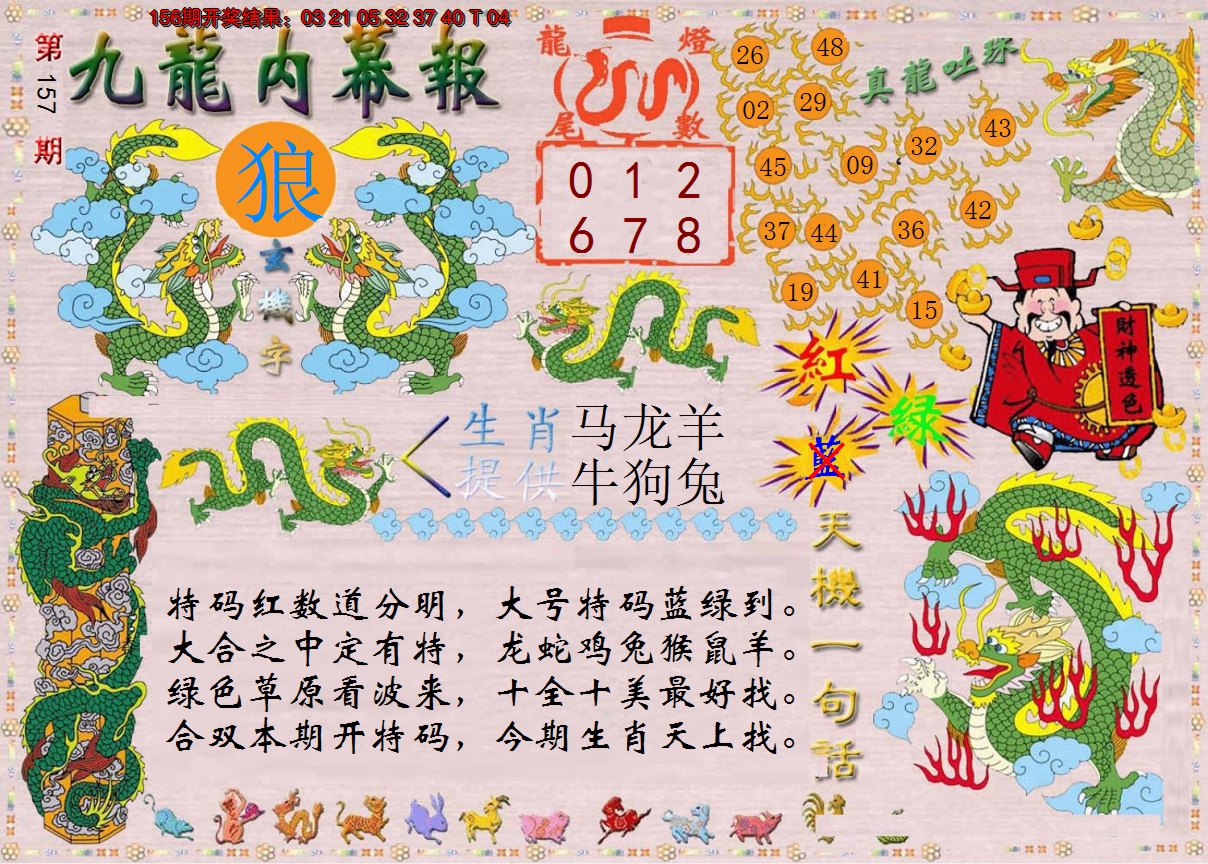 156期开奖结果：03 21 05 32 37 40 T 04
第157期
九龍内幕報
狼
玄機字
龍燈尾數
0 1 2
6 7 8
真龍吐珠
26 48
02 29
45 09 32 43
37 44 36 42
19 41 15
財神透色
紅
绿
藍
生肖提供
马龙羊
牛狗兔
天機一句話
特码红数道分明，大号特码蓝绿到。
大合之中定有特，龙蛇鸡兔猴鼠羊。
绿色草原看波来，十全十美最好找。
合双本期开特码，今期生肖天上找。